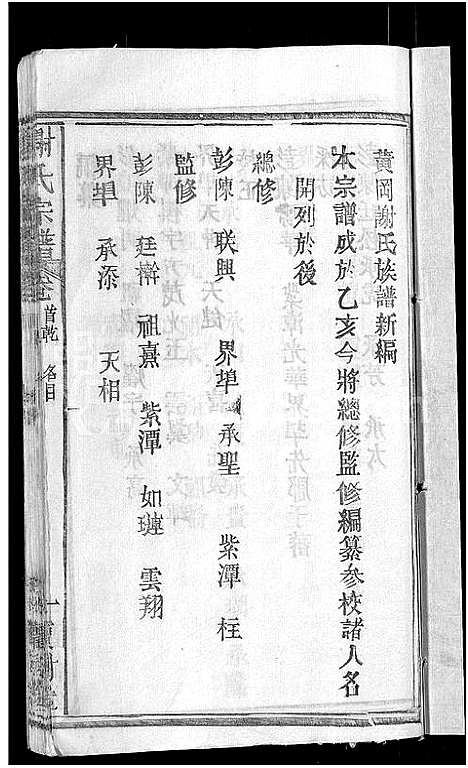 黄岡謝氏族譜新編
本宗譜成於乙亥今將總修監修編纂參校諸人名
開列於後
總修
彭陳 联興 界埠 承聖 紫潭 柱
監修
彭陳 廷榦 祖熹 紫潭 如璉 雲翔
界埠 承添 天相
謝氏宗譜 卷首乾 名目 一 寶樹堂